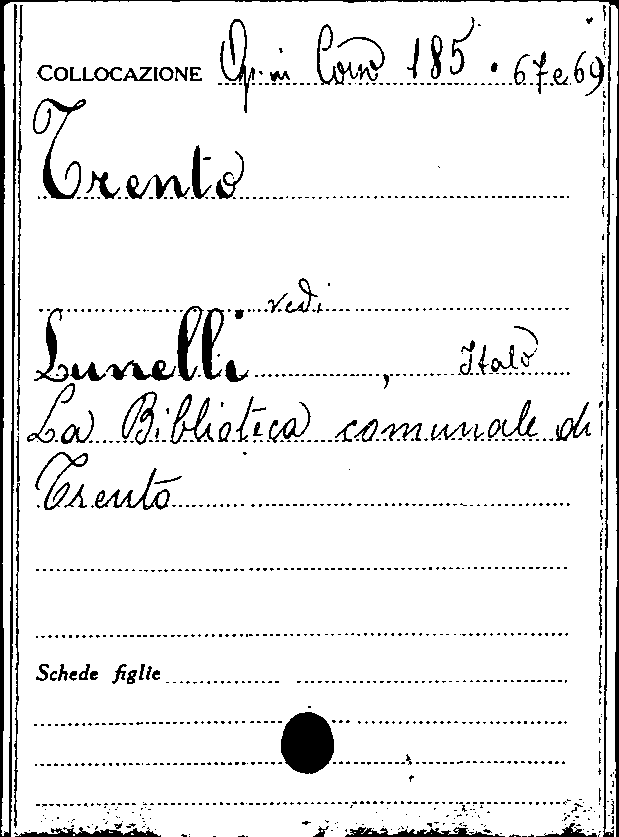 COLLOCAZIONE Op. in Cors 185 . 67 e 69
Trento
vedi
Lunelli , Italo
La Biblioteca comunale di
Trento
Schede figlie